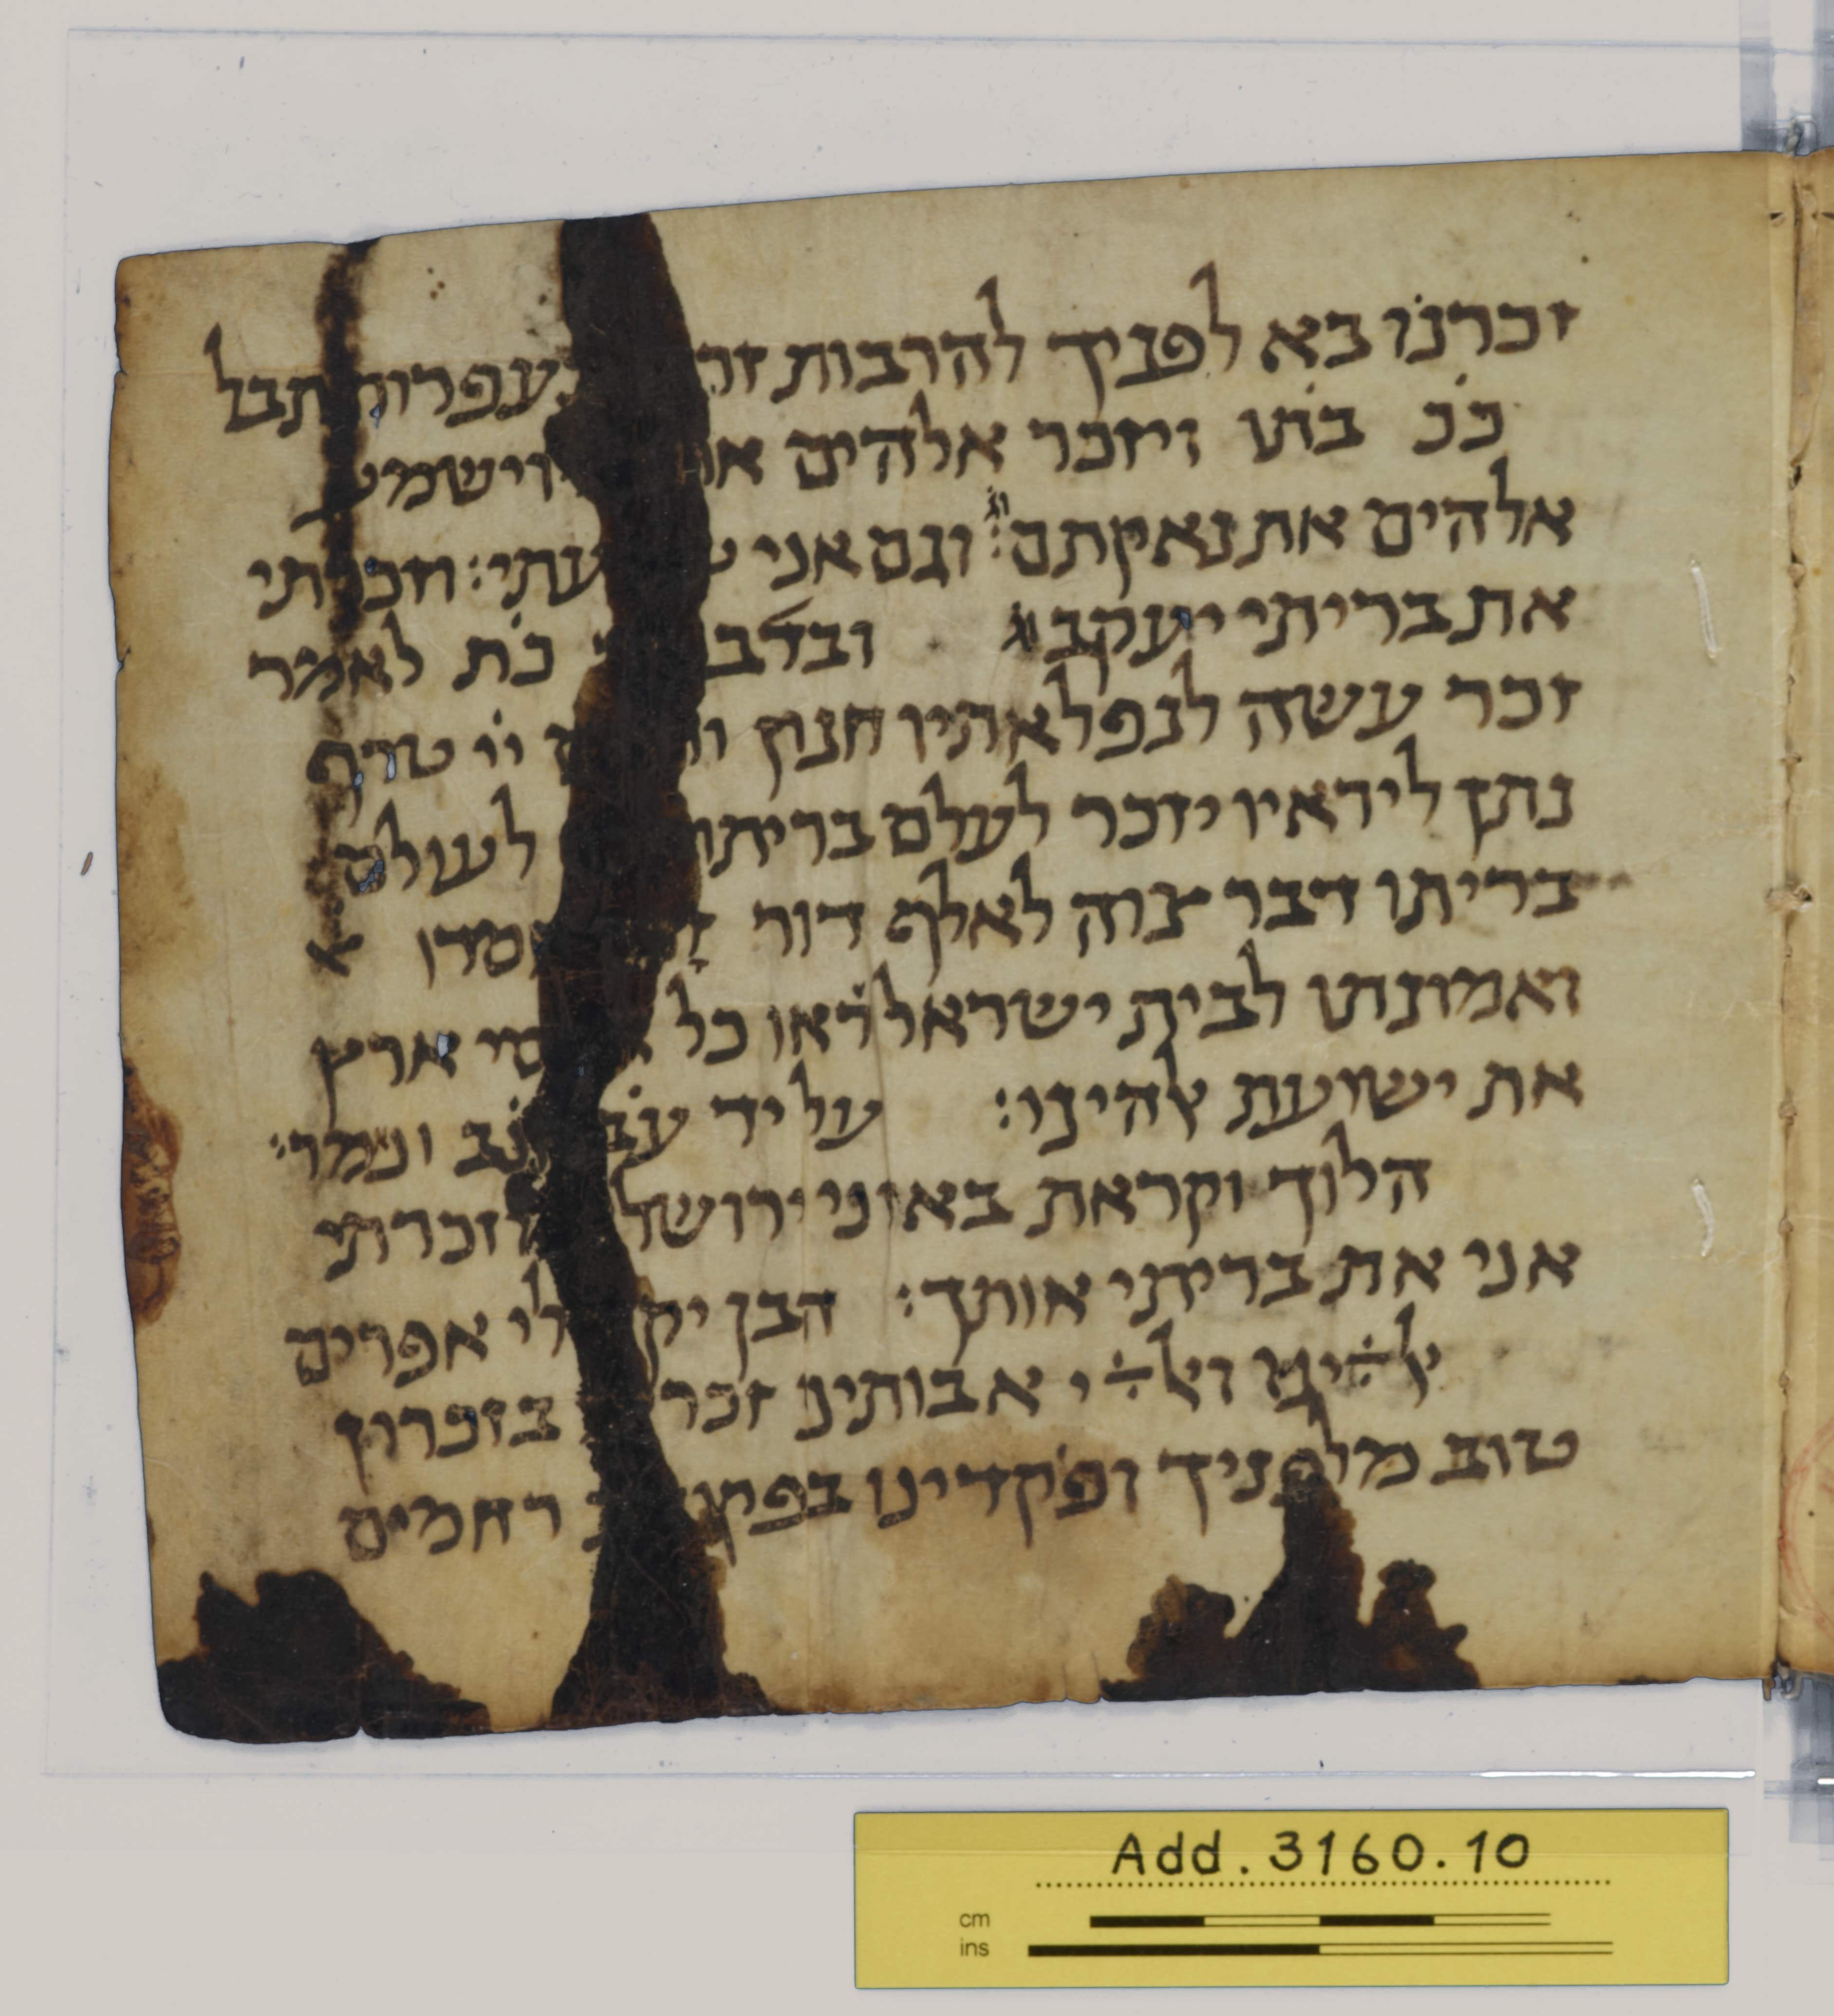 זכרנו בא לפניך להרבות זר כעפרות תבל
ככ בתו ויזכר אלהים את וישמע
אלהים את נאקתם׃ וג וגם אני ש עתי׃ וזכרתי
את בריתי יעקב וג ובדב כת לאמר
זכר עשה לנפלאתיו חנון ור יי טרף
נתן ליראיו יזכר לעלם בריתו לעולם
בריתו דבר צוה לאלף דור חסדו א
ואמונתו לבית ישראל ראו כל סי ארץ
את ישועת אלהינו׃ על יד עב ונמר׃
הלוך וקראת באזני ירושל זכרתי
אני את בריתי אותך׃ הבן יק לי אפרים
אבותינו זכר בזכרון
טוב מלפניך ופקדינו בפק רחמים
Add. 3160.10
cm
ins